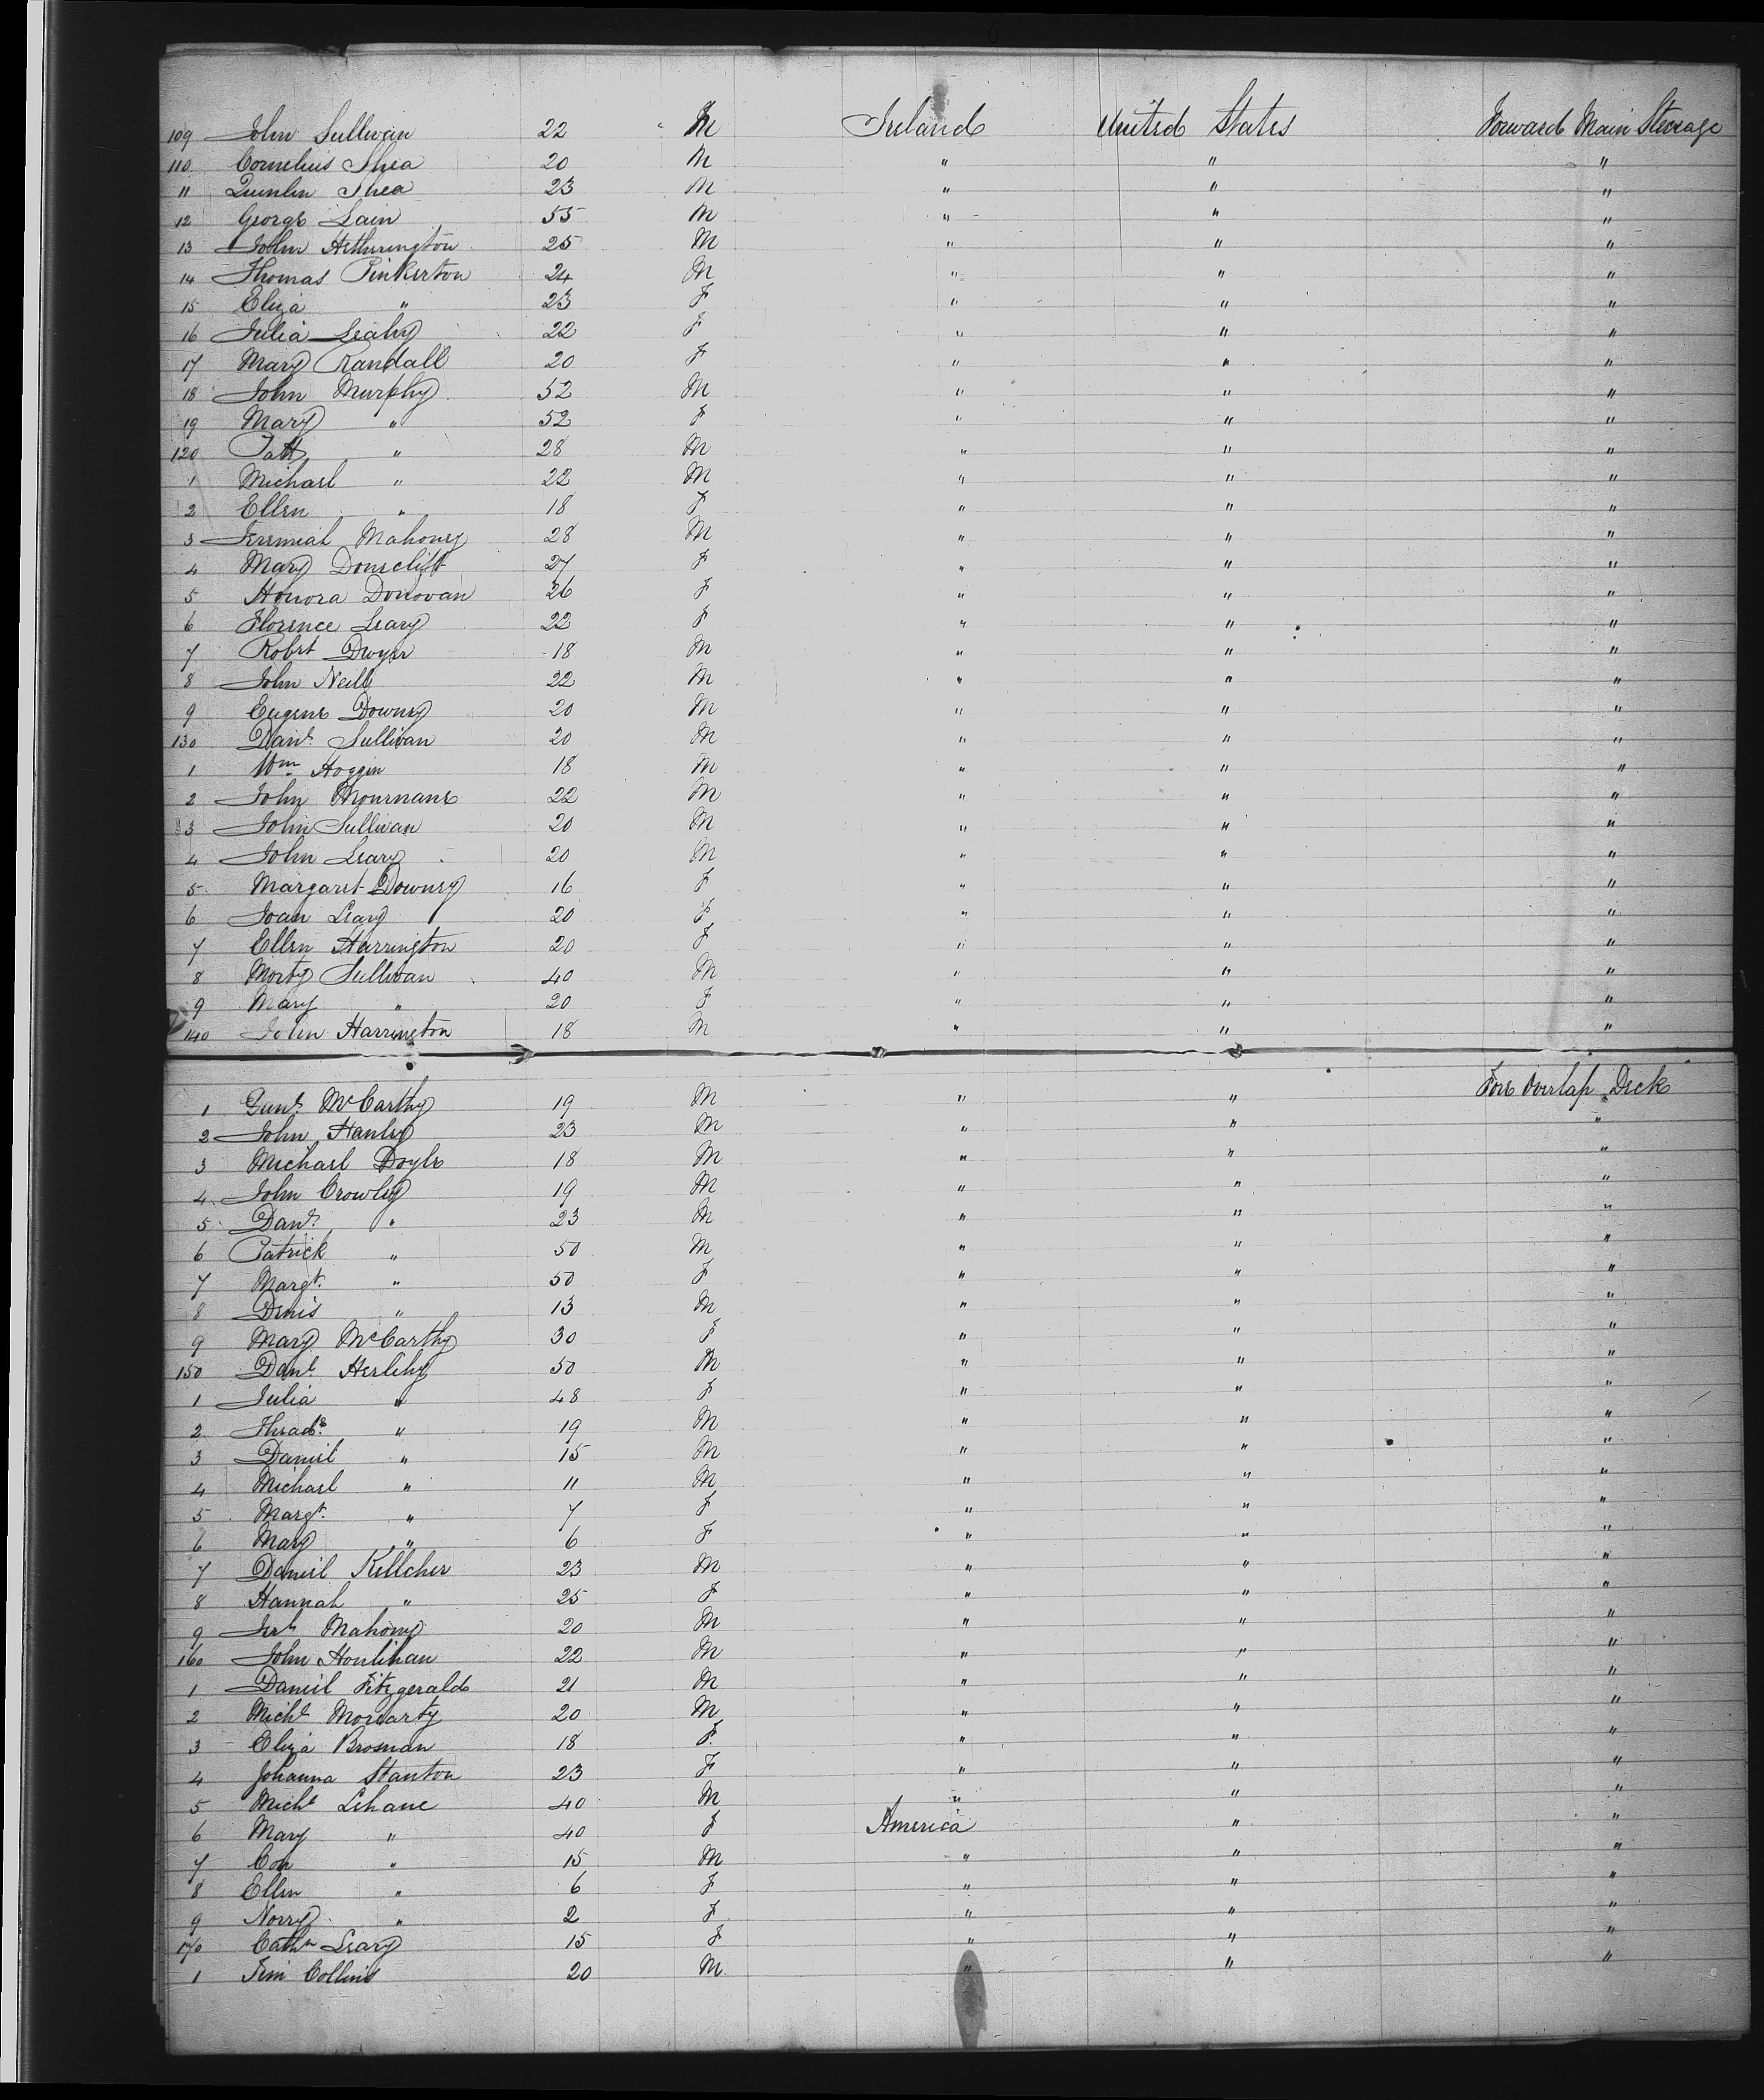 109 John Sullivan 22 M Ireland United States Forward Main Steerage
110 Cornelius Shea 20 M " " "
11 Quinlin Shea 23 M " " "
12 George Lain 55 M " " "
13 John Hetherington 25 M " " "
14 Thomas Pinkerton 24 M " " "
15 Eliza " 23 F " " "
16 Julia Leahy 22 F " " "
17 Mary Randall 20 F " " "
18 John Murphy 52 M " " "
19 Mary " 52 F " " "
120 Patk " 28 M " " "
1 Michael " 22 M " " "
2 Ellen " 18 F " " "
3 Jeremiah Mahoney 28 M " " "
4 Mary 27 F " " "
5 Honora Donovan 26 F " " "
6 Florence Leary 22 F " " "
7 Robt Dwyer 18 M " " "
8 John Neill 22 M " " "
9 Eugene Downey 20 M " " "
130 Danl Sullivan 20 M " " "
1 Wm Hoggin 18 M " " "
2 John Mournane 22 M " " "
3 John Sullivan 20 M " " "
4 John Leary 20 M " " "
5 Margaret Downey 16 F " " "
6 Joan Leary 20 F " " "
7 Ellen Harrington 20 F " " "
8 Morty Sullivan 40 M " " "
9 Mary " 20 F " " "
140 John Harrington 18 M " " "
1 Danl McCarthy 19 M " " Fore Overlap Deck
2 John Hanley 23 M " " "
3 Michael Doyle 18 M " " "
4 John Crowley 19 M " " "
5 Danl " 23 M " " "
6 Patrick " 50 M " " "
7 Margt. " 50 F " " "
8 Denis " 13 M " " "
9 Mary McCarthy 30 F " " "
150 Danl Herlihy 50 M " " "
1 Julia " 48 F " " "
2 " 19 M " " "
3 Daniel " 15 M " " "
4 Michael " 11 M " " "
5 Margt. " 7 F " " "
6 Mary " 6 F " " "
7 Daniel Kellcher 23 M " " "
8 Hannah " 25 F " " "
9 Jerh Mahony 20 M " " "
160 John Houlihan 22 M " " "
1 Daniel Fitzgerald 21 M " " "
2 Michl Moriarty 20 M " " "
3 Eliza Brosnan 18 F " " "
4 Johanna Stanton 23 F " " "
5 Michl Lehane 40 M " " "
6 Mary " 40 F America " "
7 Con " 15 M " " "
8 Ellen " 6 F " " "
9 Norry " 2 F " " "
170 Cathn Leary 15 F " " "
1 Tim Collins 20 M " " "